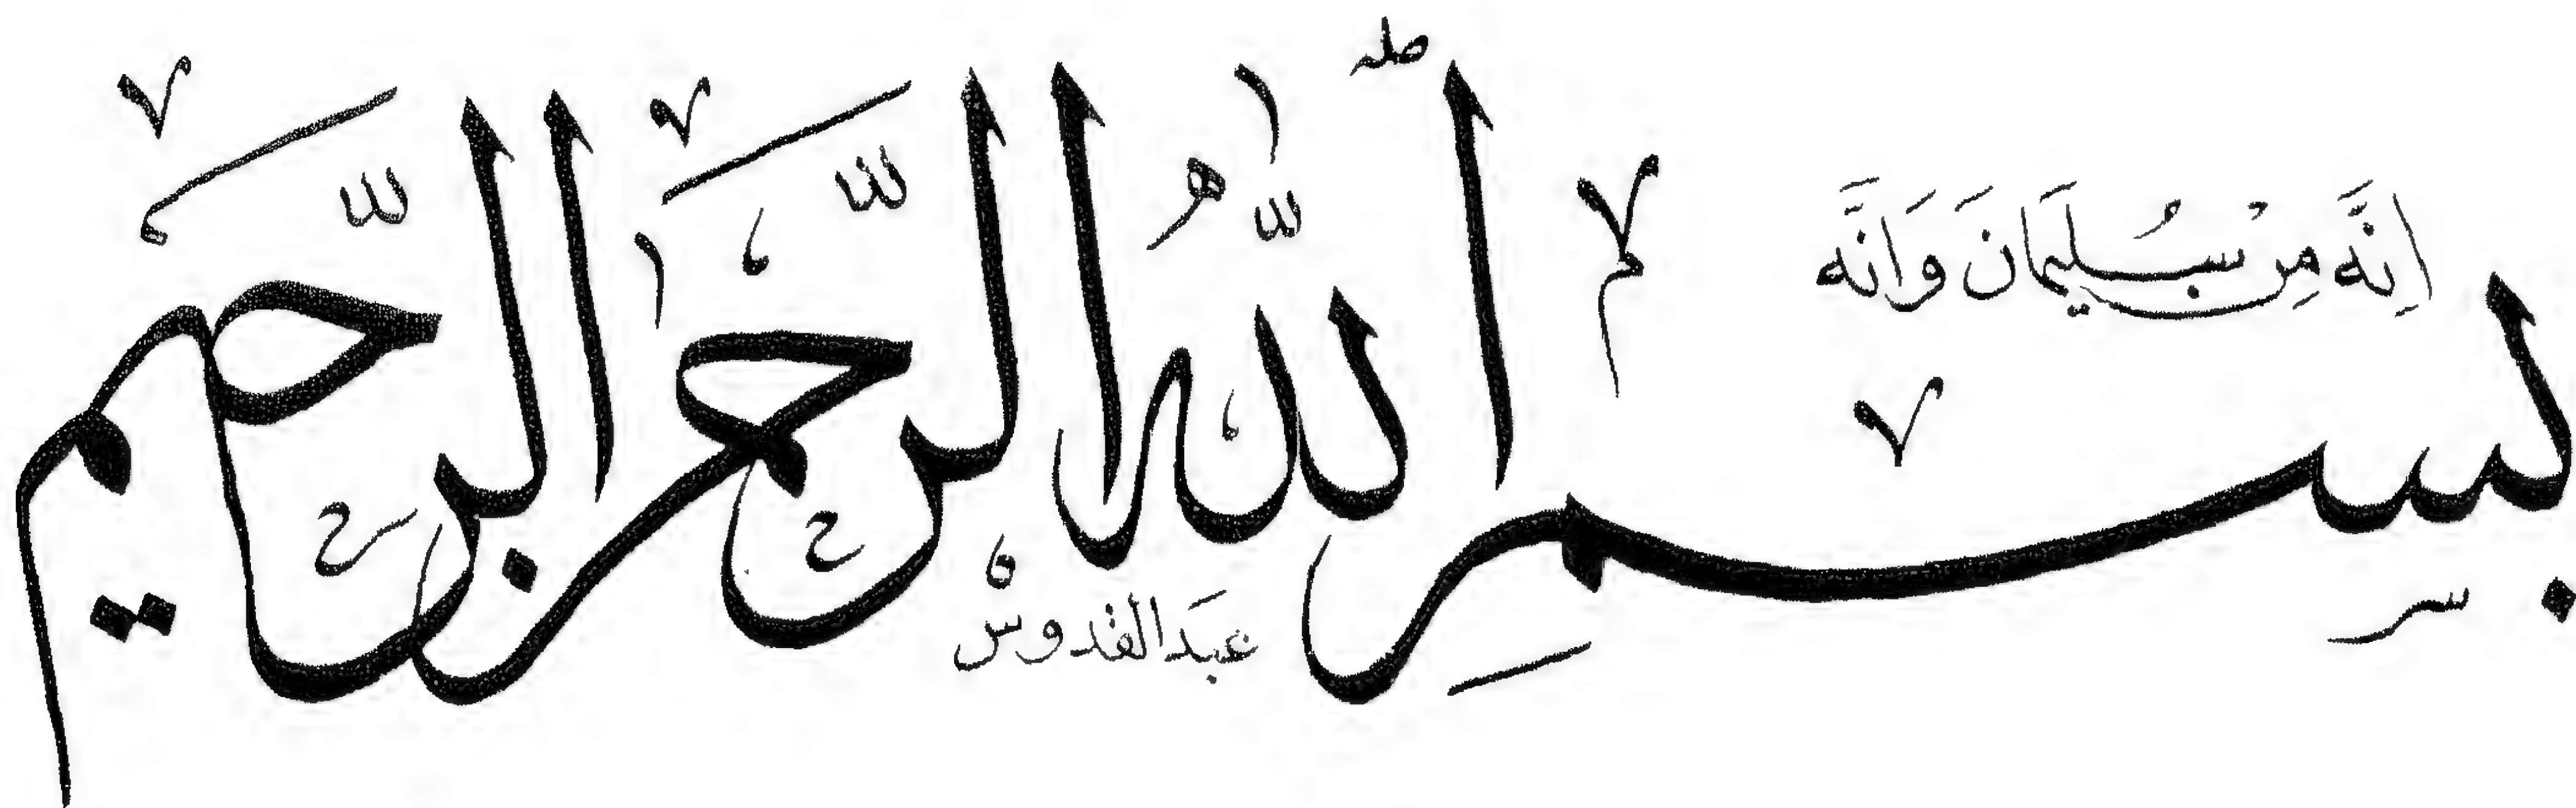 اِنَّهٗ مِنْ سُلَيْمَانَ وَاِنَّهٗ
بسم الله الرحمن الرحيم
عبد القدوس